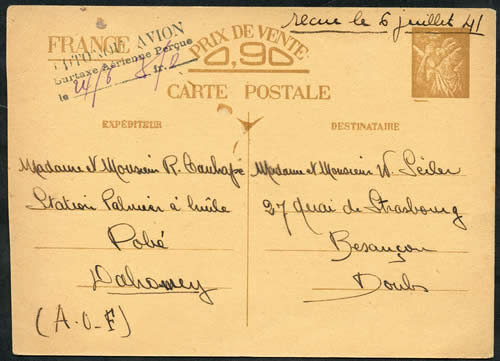 recue le 6 juillet 41
FRANCE
AVION
Surtaxe Aérienne Perçue
le 24/6 fr.
PRIX DE VENTE
0,90
CARTE POSTALE
EXPÉDITEUR
Madame & Monsieur R.
Station Palmier à huile
Pobé
Dahomey
(A.O.F)
DESTINATAIRE
Madame & Monsieur W. Seiler
27 Quai de Strasbourg
Besançon
Doubs